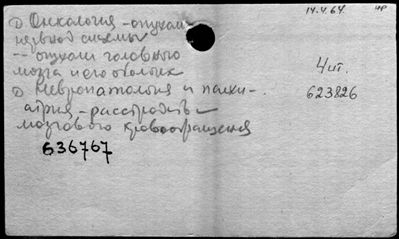 14.4.64 нр
1) Онкология - опухоли
нервной системы
-- опухоли головного
мозга и его оболочек
4 шт.
2) Невропатология и психи-
атрия - расстройств-
мозгового кровообращения
623826
636767